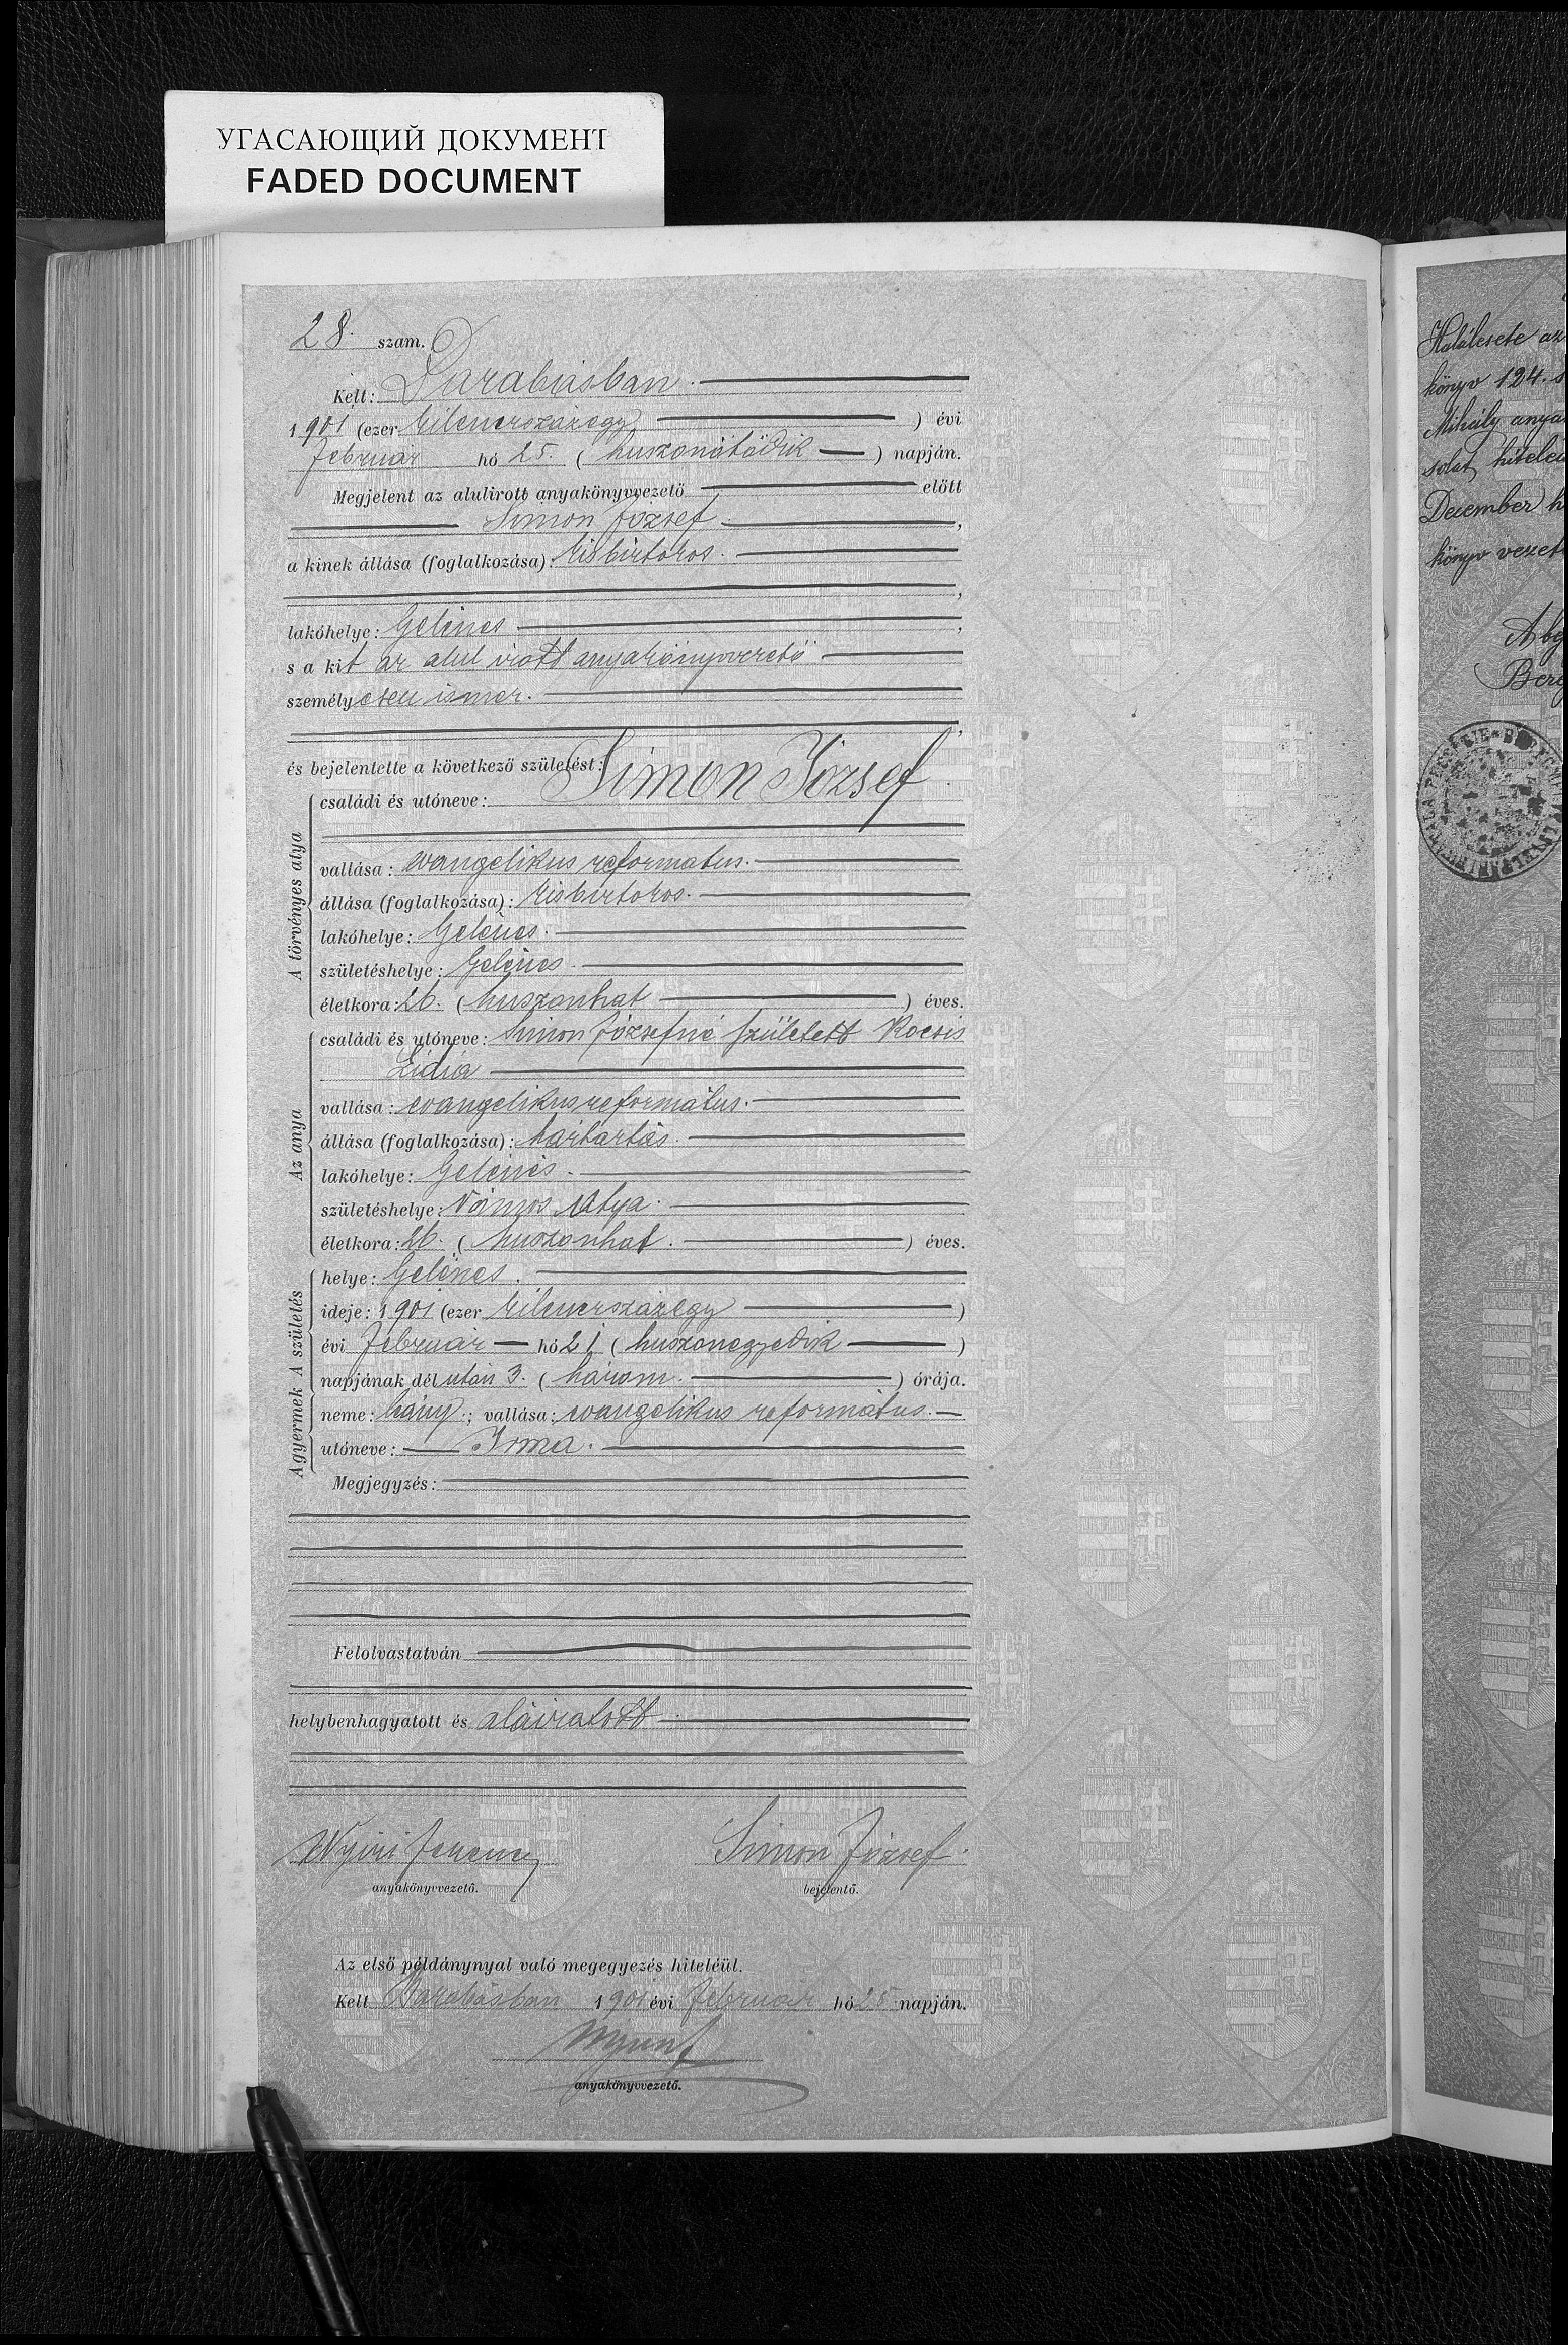 УГАСАЮЩИЙ ДОКУМЕНТ
FADED DOCUMENT
28. szam.
Kelt: Barabásban.
1901 (ezer kilencszázegy) évi
február hó 25. (huszonötödik) napján.
Megjelent az alulirott anyakönyvvezető előtt
Simon József,
a kinek állása (foglalkozása): kisbirtokos.
,
lakóhelye: Gelénes,
s a kit az alul irott anyakönyvvezető
személyesen ismer.
,
és bejelentette a következő születést:
A törvényes atya
családi és utóneve: Simon József.
vallása: evangelikus reformatus.
állása (foglalkozása): kisbirtokos.
lakóhelye: Gelénes.
születéshelye: Gelénes.
életkora: 26. (huszonhat) éves.
Az anya
családi és utóneve: Simon Józsefné született Kocsis
Lidia
vallása: evangelikus református.
állása (foglalkozása): háztartás.
lakóhelye: Gelénes.
születéshelye: Vámos Atya.
életkora: 26. (huszonhat.) éves.
A születés
helye: Gelénes.
ideje: 1901 (ezer kilencszázegy)
évi február hó 21 (huszonegyedik)
napjának dél után 3. (három.) órája.
A gyermek
neme: leány.; vallása: evangelikus református.
utóneve: Irma.
Megjegyzés:
Felolvastatván
helybenhagyatott és aláiratott
Nyiri Ferencz
anyakönyvvezető.
Simon József.
bejelentő.
Az első példánynyal való megegyezés hiteléül.
Kelt Barabásban 1901 évi február hó 25 napján.
anyakönyvvezető.
Halálesete az
könyv 124. s
Mihály anya
solat hitele
December h
könyv vezet
Bere